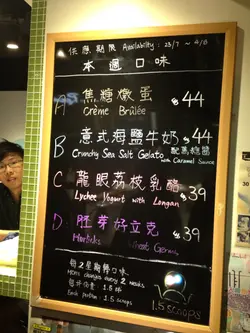 供應期限 Availability: 23/7 ~ 4/8
本週口味
A 焦糖燉蛋 $44
Crème Brûlée
B 意式海鹽牛奶 $44
配焦糖醬
Crunchy Sea Salt Gelato with Caramel Sauce
C 龍眼荔枝乳酪 $39
Lychee Yogurt with Longan
D 胚芽好立克 $39
Horlicks Wheat Germ
每2星期轉口味
Menu changes every 2 weeks
每杯份量: 1.5球
Each portion: 1.5 scoops
1.5 scoops